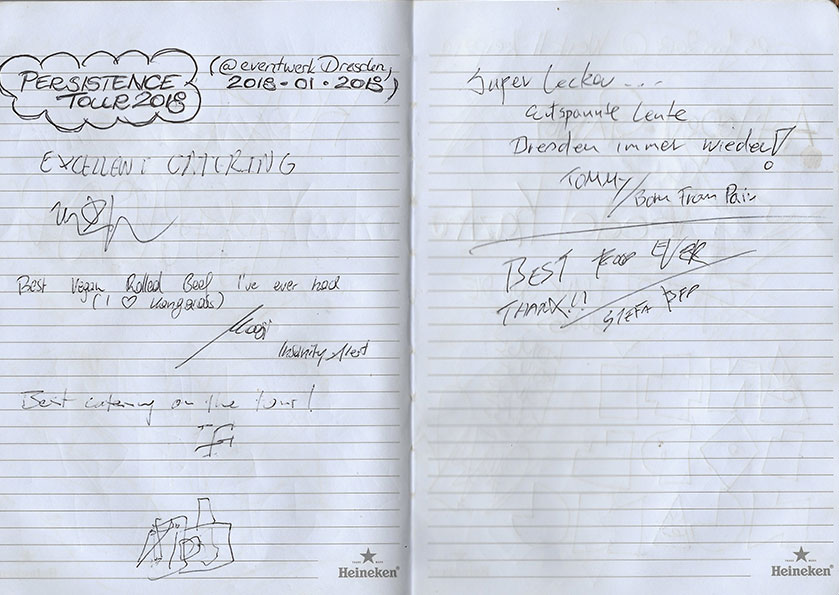 PERSISTENCE
TOUR 2018
(@eventwerk Dresden,
2018-01-2018)
EXCELLENT CATERING
Best Vegan Rolled Beef I've ever had
(I ♡ Kangaroos)
Insanity Alert
Best catering on the tour!
Heineken
Super Lecker...
entspannte Leute
Dresden immer wieder!
TOMMY/Born From Pain
BEST FOOD EVER
THANX!!
STEFA BFP
Heineken